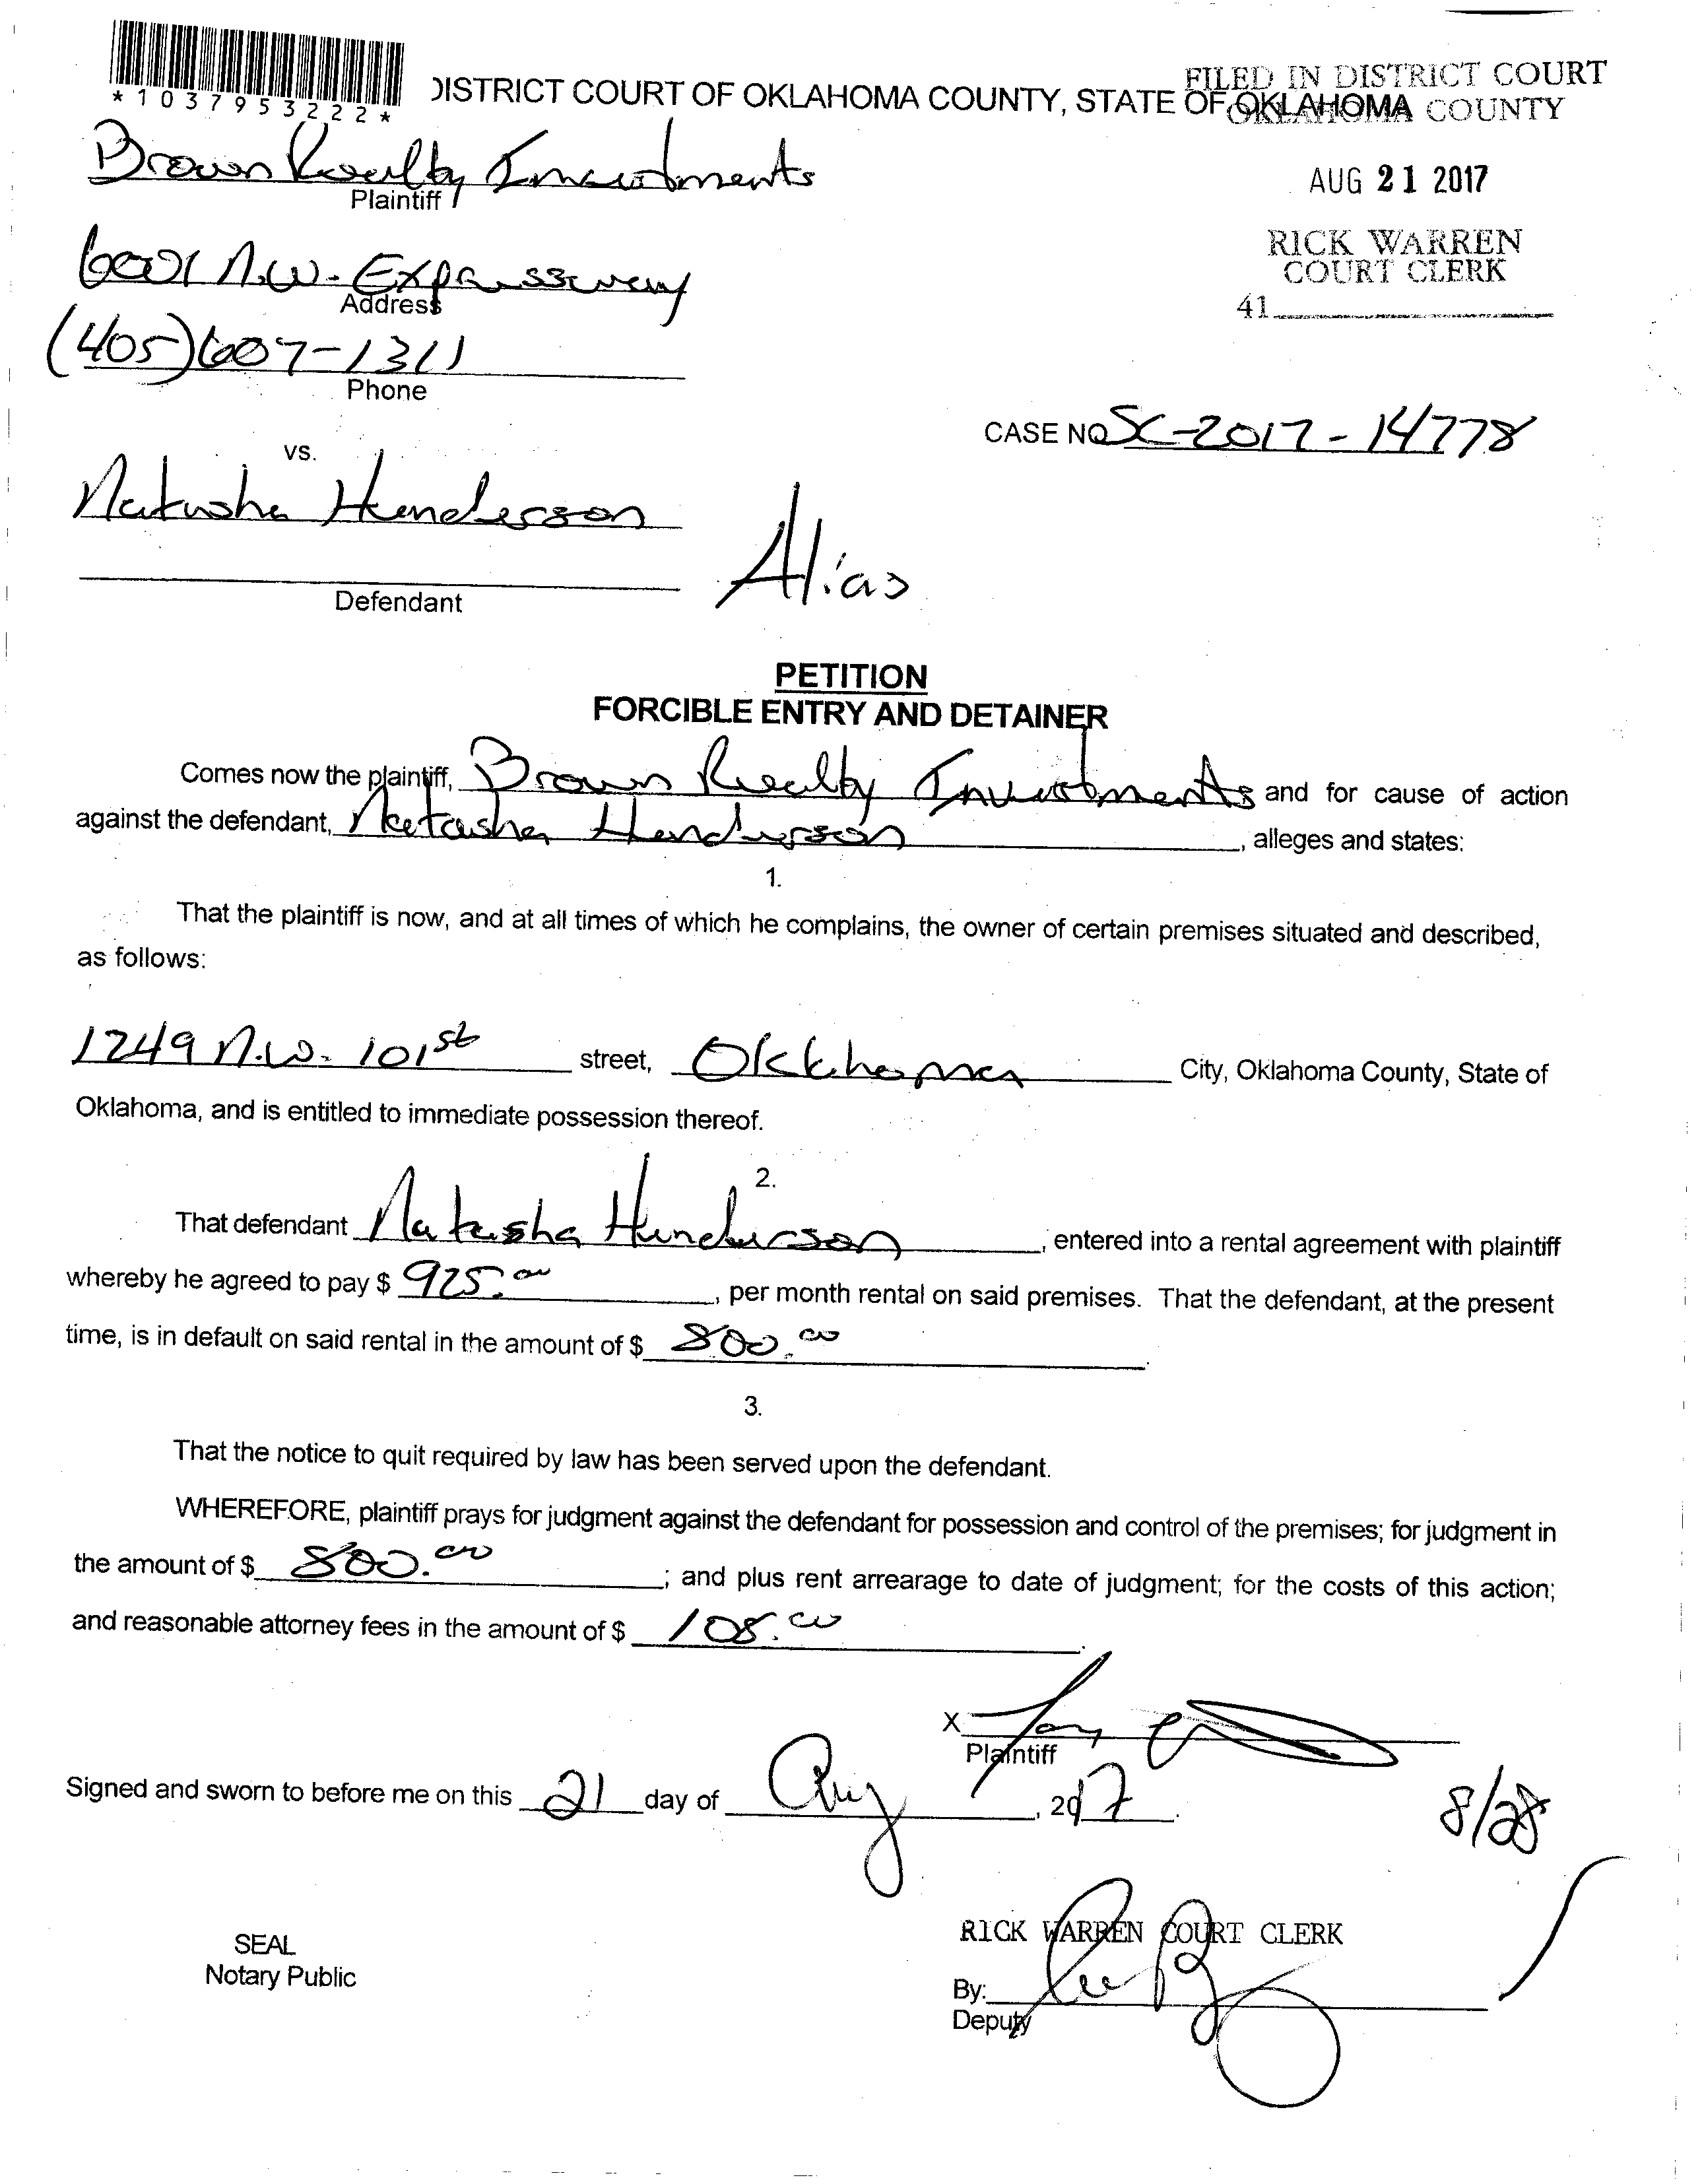 *1037953222*
DISTRICT COURT OF OKLAHOMA COUNTY, STATE OF OKLAHOMA
FILED IN DISTRICT COURT
OKLAHOMA COUNTY
AUG 21 2017
RICK WARREN
COURT CLERK
41
Brown Realty Investments
Plaintiff
6001 N.W. Expressway
Address
(405)607-1311
Phone
CASE NO SC-2017-14778
vs.
Natasha Henderson
Alias
Defendant
PETITION
FORCIBLE ENTRY AND DETAINER
Comes now the plaintiff, Brown Realty Investments and for cause of action
against the defendant, Natasha Henderson, alleges and states:
1.
That the plaintiff is now, and at all times of which he complains, the owner of certain premises situated and described,
as follows:
1249 N.W. 101st street, Oklahoma City, Oklahoma County, State of
Oklahoma, and is entitled to immediate possession thereof.
2.
That defendant Natasha Henderson, entered into a rental agreement with plaintiff
whereby he agreed to pay $ 925.00, per month rental on said premises. That the defendant, at the present
time, is in default on said rental in the amount of $ 800.00.
3.
That the notice to quit required by law has been served upon the defendant.
WHEREFORE, plaintiff prays for judgment against the defendant for possession and control of the premises; for judgment in
the amount of $ 800.00; and plus rent arrearage to date of judgment; for the costs of this action;
and reasonable attorney fees in the amount of $ 108.00.
X
Plaintiff
Signed and sworn to before me on this 21 day of Aug, 2017.
8/28
RICK WARREN COURT CLERK
SEAL
Notary Public
By:
Deputy